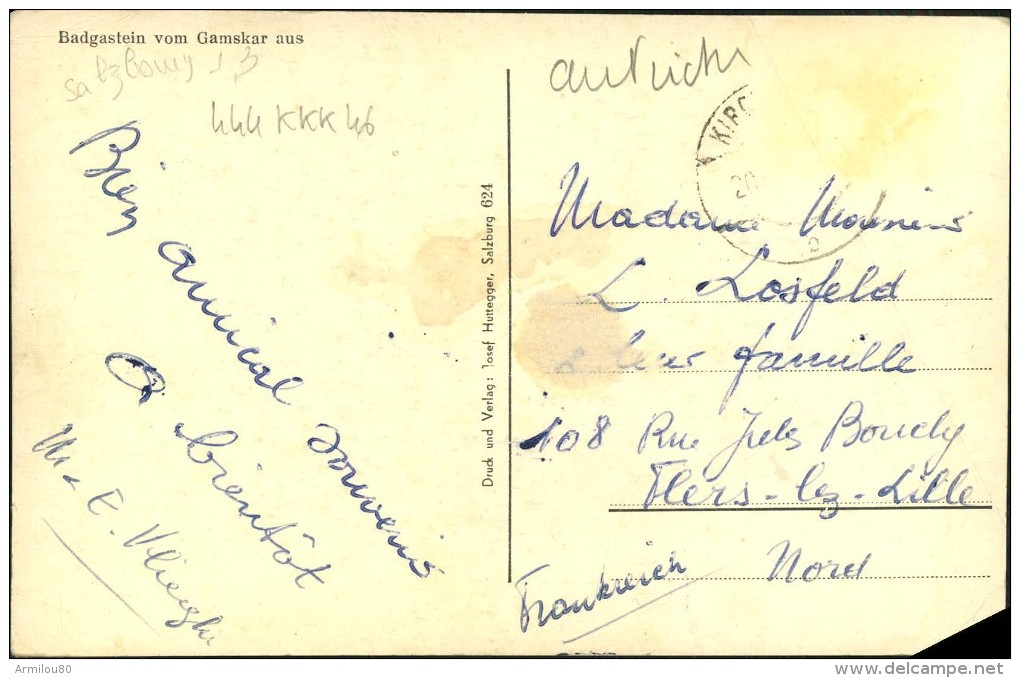 Badgastein vom Gamskar aus
Salzbourg 13
444 KKK 46
autriche
KIRC
20
b
Bien amical souvenir
a bientôt
M. E. Vlieghe
Druck und Verlag: Josef Huttegger, Salzburg 624
Madame Monsieur
L. Losfeld
& leur famille
108 Rue Jules Boucly
Flers-lez-Lille
Nord
Frankreich
Armilou80
delcampe.net